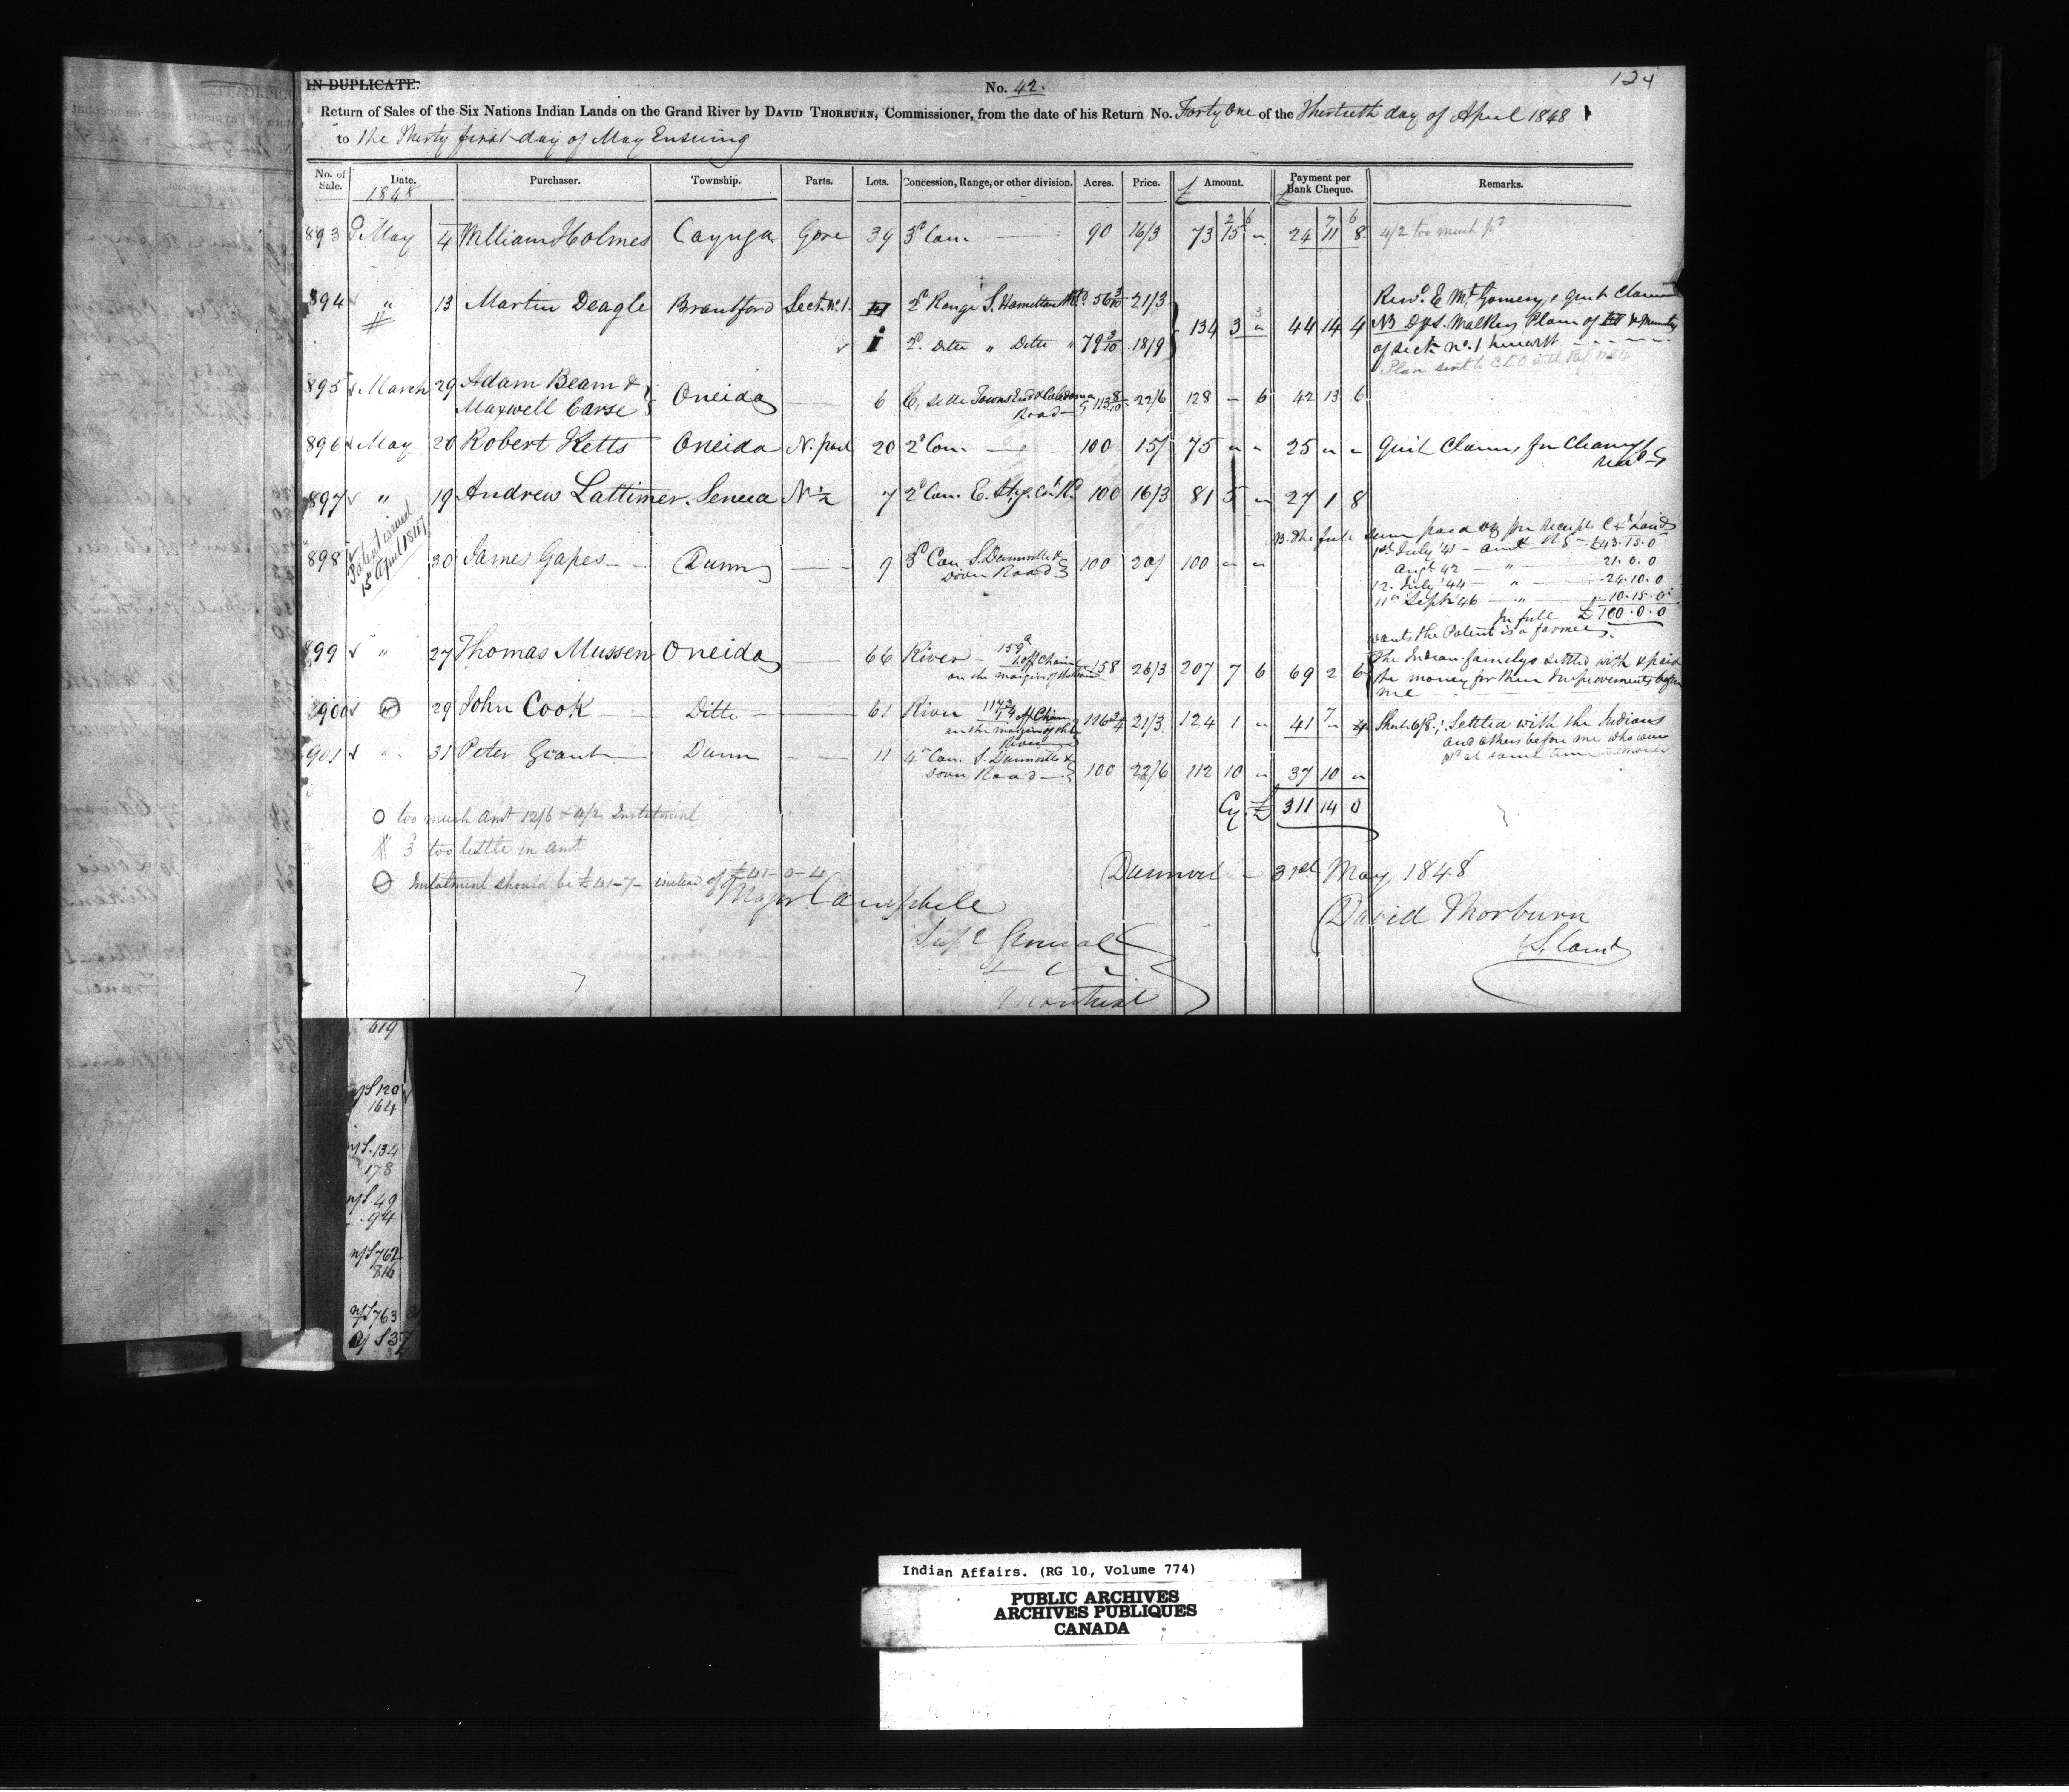 124
IN DUPLICATE.
No. 42.
Return of Sales of the Six Nations Indian Lands on the Grand River by DAVID THORBURN, Commissioner, from the date of his Return No. Forty One of the Thirtieth day of April 1848
to the Thirty first day of May Ensuing
No. of Sale. Date. Purchaser. Township. Parts. Lots. Concession, Range, or other division. Acres. Price. £ Amount. Payment per Bank Cheque. £ Remarks.
1848
2 6 7 6
893 May 4 William Holmes Cayuga Gore 39 3d Con. 90 16/3 73 15 " 24 11 8 4/2 too much pd
894 " 13 Martin Deagle Brantford Sect. No. 1. III 2d Range S. Hamilton Rd. 56 3/10 21/3
134 3 " 44 14 4
I 2d. Ditto " Ditto " 79 3/10 18/9
of sect. no. 1 herewith
895 March 29 Adam Beam &
Maxwell Carse Oneida 6 E, side Towns End & Caledonia Road 113 8/10 22/6 128 - 6 42 13 6
896 May 20 Robert Ketts Oneida N. part 20 2d Con. 100 15/ 75 " " 25 " " Quit Claims for Clearing
897 " 19 Andrew Lattimer Seneca N 1/2 7 2d Con. E. 100 16/3 81 5 " 27 1 8
Patent issued
15 April 1847
898 30 James Gapes Dunn 9 3d Con. S. Dunnville &
Dover Road 100 20/ 100 " "
1st July '41 - £43.15.0
Augt. 42 - " - 21.0.0
12. July '44 - " - 24.10.0
11th Sept '46 - " - 10.15.0
In full £100.0.0
wants the Patent is a farmer
899 " 27 Thomas Mussen Oneida 66 River 159
1 off Chain
on the margin of the River 158 26/3 207 7 6 69 2 6 The Indian familys settled with & paid
the money for their Improvements before
me
900 29 John Cook Ditto 61 River 117 3/4
1 off Chain
on the margin of the
River 116 3/4 21/3 124 1 " 41 7 " 4 Settled with the Indians
and others before me who were
901 " 31 Peter Grant Dunn 11 4th Con. S. Dunnville &
Dover Road 100 22/6 112 10 " 37 10 "
Cy. £ 311 14 0
O too much amt 12/6 & 4/2 Instalment
# 3 too little in amt
Instalment should be £41-7- instead of £41-0-4
Dunnvil - 31st May 1848
Major Campbell
David Thorburn
Supt General
Montreal
619
120
164
134
178
49
94
762
816
763
37
Indian Affairs. (RG 10, Volume 774)
PUBLIC ARCHIVES
ARCHIVES PUBLIQUES
CANADA